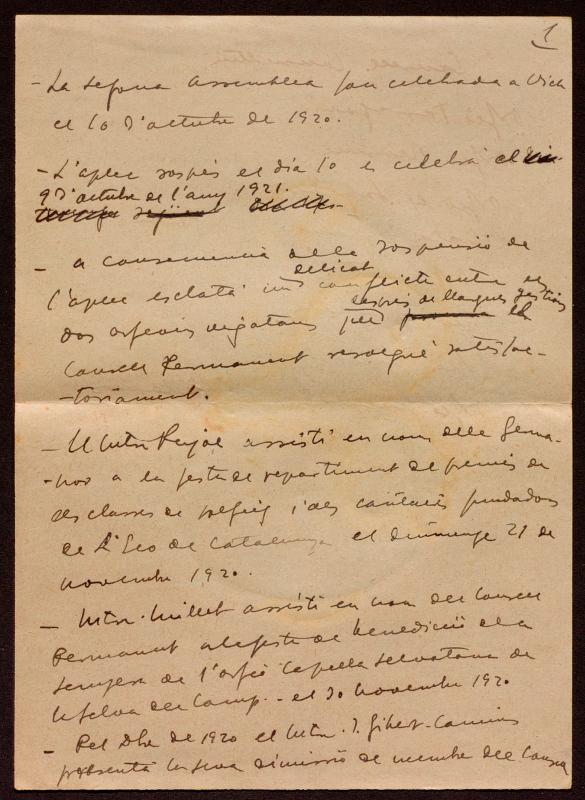 1
- La segona Assemblea fou celebrada a Vich
el 10 d'octubre de 1920.
- L'aplec sospès el dia 10 es celebrà el
9 d'octubre de l'any 1921.
següent
- A consequencia de la suspensió de
l'aplec esclatà un delicat conflicte entre els
dos orfeons vigatans que després de llargues gestions el
Consell Permanent resolgué satisfac-
-toriament.
- Mtre Pujol assistí en nom de la Germa-
-nor a la festa de repartiment de premis de
les classes de solfeig i dels cantaires fundadors
de L'Eco de Catalunya el diumenge 21 de
novembre 1920.
- Mtre. Millet assistí en nom del Consell
Permanent a la festa de benedicció de la
senyera de l'orfeó Capella Selvatana de
la Selva del Camp. - el 30 novembre 1920
- Pel Dbre de 1920 el Mtre. J. Gibert-Camins
presentà la seva dimissió de membre del Consell